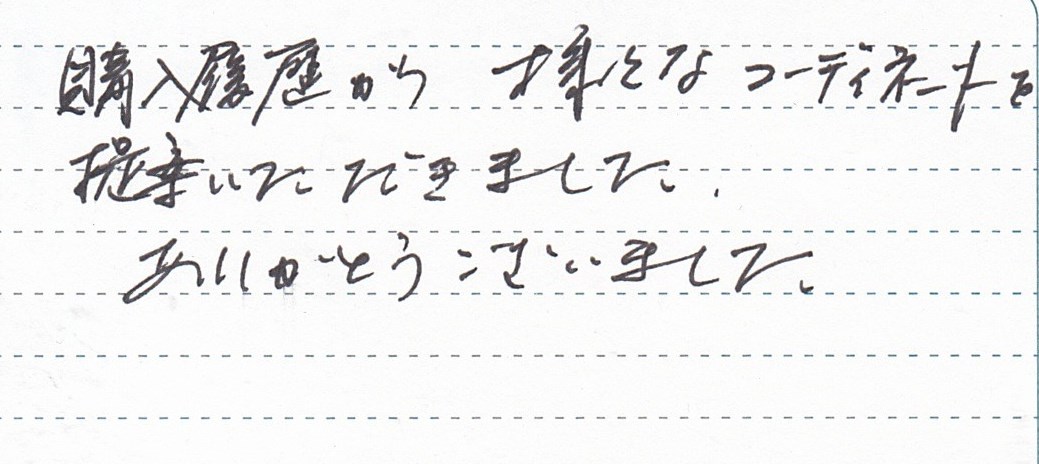 購入履歴から 様々なコーディネートを
提案いただきました.
ありがとうございました。